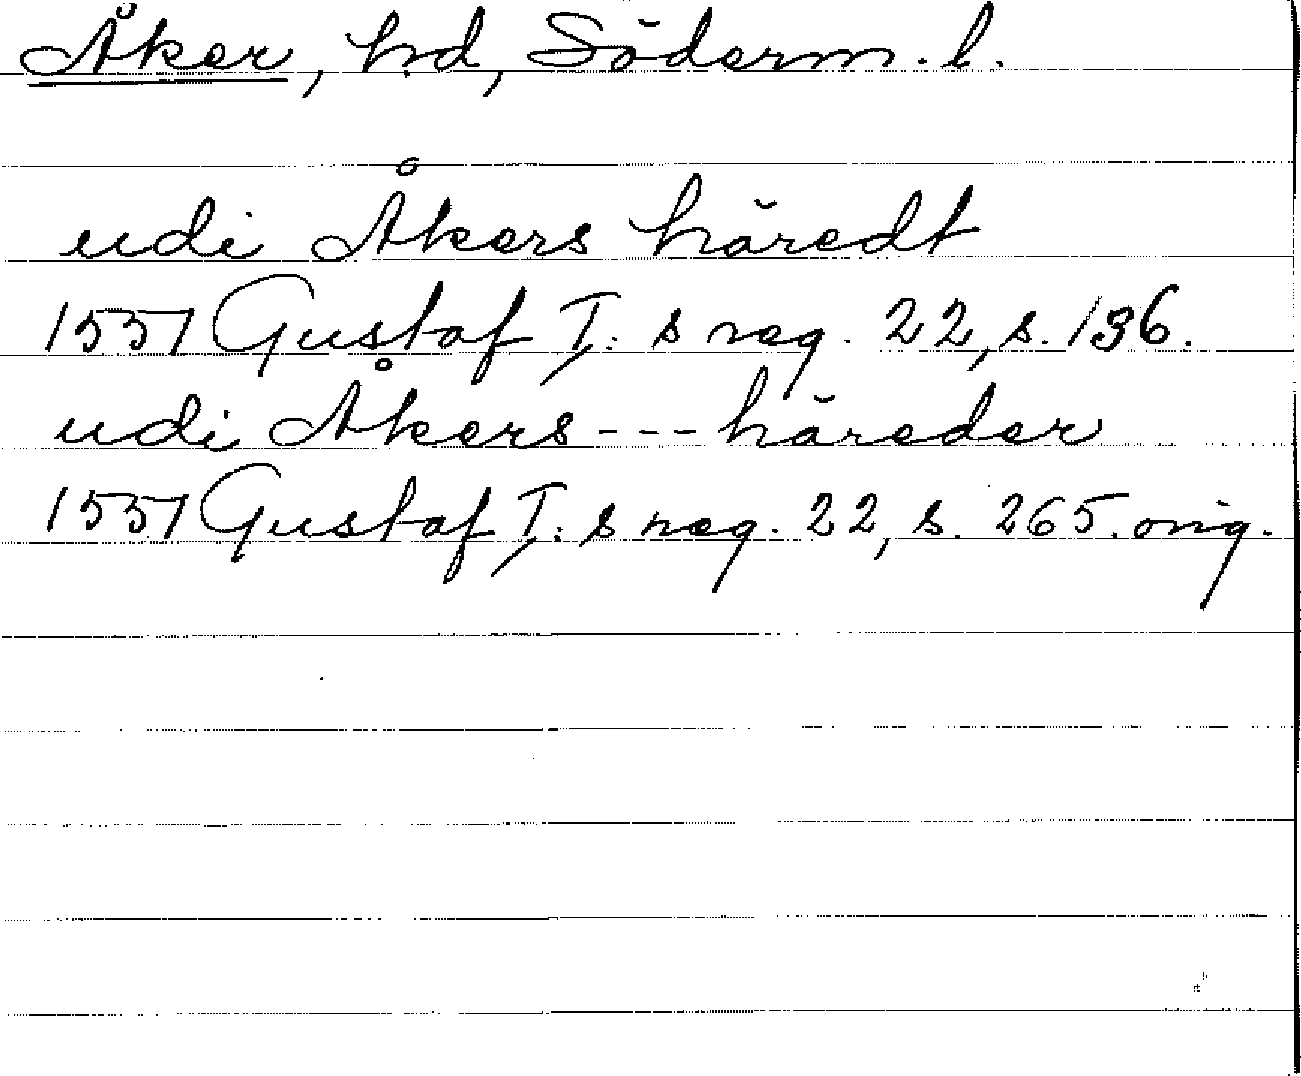 Åker, hd, Söderm. l.
udi Åkers häredt
1551 Gustaf I:s reg. 22, s. 136.
udi Åkers --- häreder
1551 Gustaf I:s reg. 22, s. 265. orig.